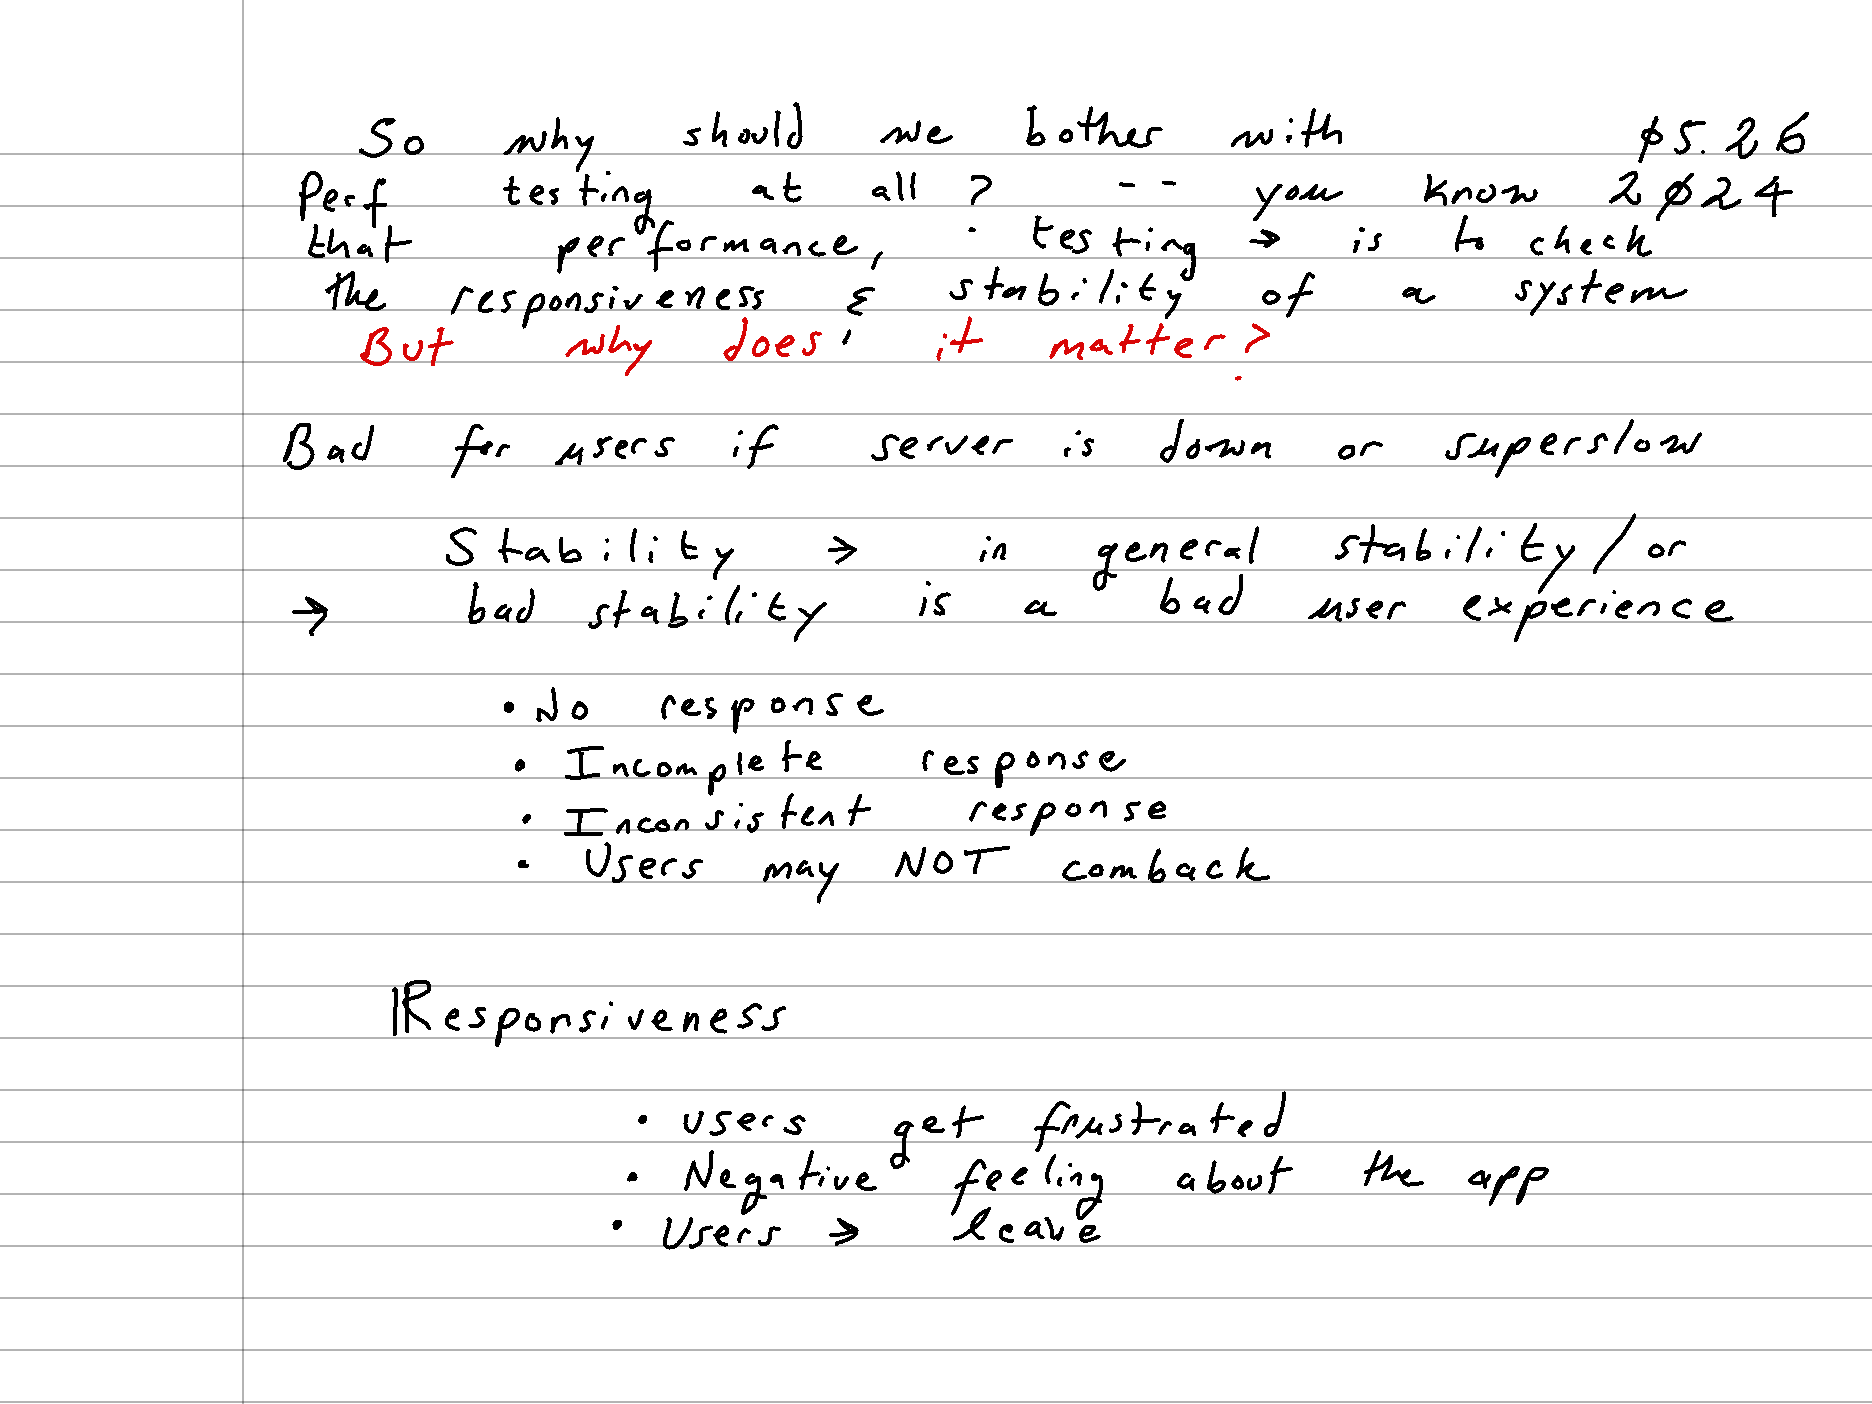 So why should we bother with ø5.26
Perf testing at all? -- you know 2ø24
that performance, testing → is to check
the responsiveness & stability of a system
But why does it matter?
Bad for users if server is down or superslow
Stability → in general stability/or
→ bad stability is a bad user experience
• No response
• Incomplete response
• Inconsistent response
• Users may NOT comback
Responsiveness
• users get frustrated
• Negative feeling about the app
• Users → leave